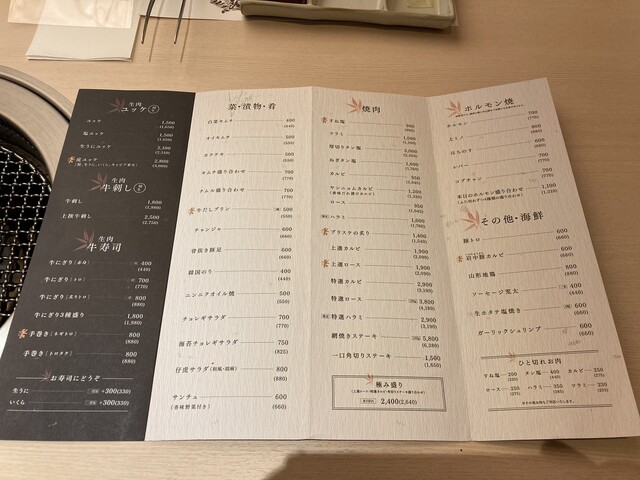 生肉
ユッケ
ユッケ 1,500
(1,650)
塩ユッケ 1,500
(1,650)
生うにユッケ
炭ユッケ 2,800
生肉
牛刺し
牛刺し 1,600
上抜牛刺し 2,500
(2,750)
生肉
牛寿司
牛にぎり 400
(440)
牛にぎり 700
(770)
牛にぎり 800
(880)
牛にぎり3種盛り 1,800
(1,980)
手巻き(ネギトロ) 800
(880)
手巻き(トロタク) 800
(880)
お寿司にどうぞ
生うに +300(330)
いくら +300(330)
菜・漬物・肴
白菜キムチ 400
(440)
オイキムチ 500
(550)
カクテキ 500
(550)
キムチ盛り合わせ 700
(770)
ナムル盛り合わせ 700
(770)
牛だしプリン 500
(550)
チャンジャ 600
(660)
骨抜き豚足 600
(660)
韓国のり 400
(440)
ニンニクオイル焼 500
(550)
チョレギサラダ 700
(770)
海苔チョレギサラダ 750
(825)
仔虎サラダ 800
(880)
サンチュ 600
(香味野菜付き) (660)
焼肉
すね塩
ツラミ
厚切りタン塩
ねぎタン塩
カルビ
ヤンニョムカルビ
ロース 950
ハラミ 1,600
ブリスケの炙り 1,400
(1,540)
上選カルビ 1,900
(2,090)
上選ロース 1,900
(2,090)
特選カルビ 2,900
(3,190)
特選ロース 3,800
(4,180)
特選ハラミ 2,900
(3,190)
網焼きステーキ 5,800
(6,380)
一口角切りステーキ 1,500
(1,650)
極み盛り
2,400(2,640)
ホルモン焼
ホルモン 700
(770)
上ミノ
はちのす
レバー 700
(770)
コプチャン 700
(770)
本日のホルモン盛り合わせ 1,100
(1,210)
その他・海鮮
豚トロ 600
(660)
岩中豚カルビ 600
(660)
山形地鶏 800
(880)
ソーセージ荒太 400
(440)
生ホタテ塩焼き 600
(660)
ガーリックシュリンプ 600
(660)
ひと切れお肉
すね塩 200
(220)
タン塩 400
(440)
カルビ 250
(275)
ロース 250
(275)
ハラミ 350
ツラミ 230